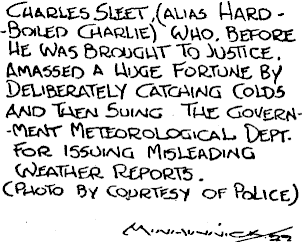 CHARLES SLEET, (ALIAS HARD-
-BOILED CHARLIE) WHO, BEFORE
HE WAS BROUGHT TO JUSTICE.
AMASSED A HUGE FORTUNE BY
DELIBERATELY CATCHING COLDS
AND THEN SUING THE GOVERN-
-MENT METEOROLOGICAL DEPT.
FOR ISSUING MISLEADING
WEATHER REPORTS.
(PHOTO BY COURTESY OF POLICE)
MINHINNICK